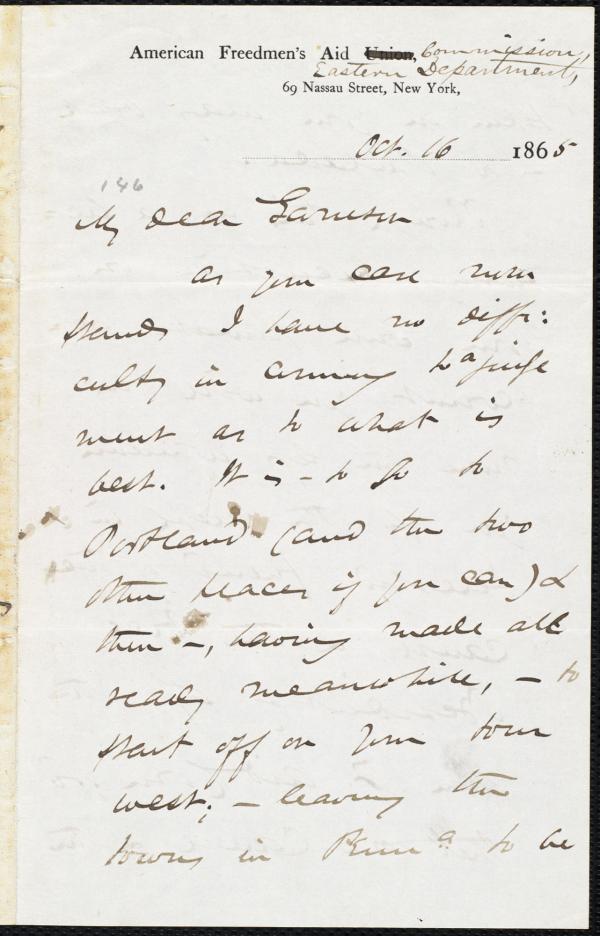 American Freedmen's Aid Union, Commission,
Eastern Department,
69 Nassau Street, New York,
Oct. 16 1865
146
My dear Garrison
as your case now
stands I have no diffi:
culty in coming to a judge
ment as to what is
best. It is - to go to
Portland (and the two
other places if you can) &
then -, having made all
ready meanwhile, - to
start off on your tour
west; - leaving the
towns in Penna to be